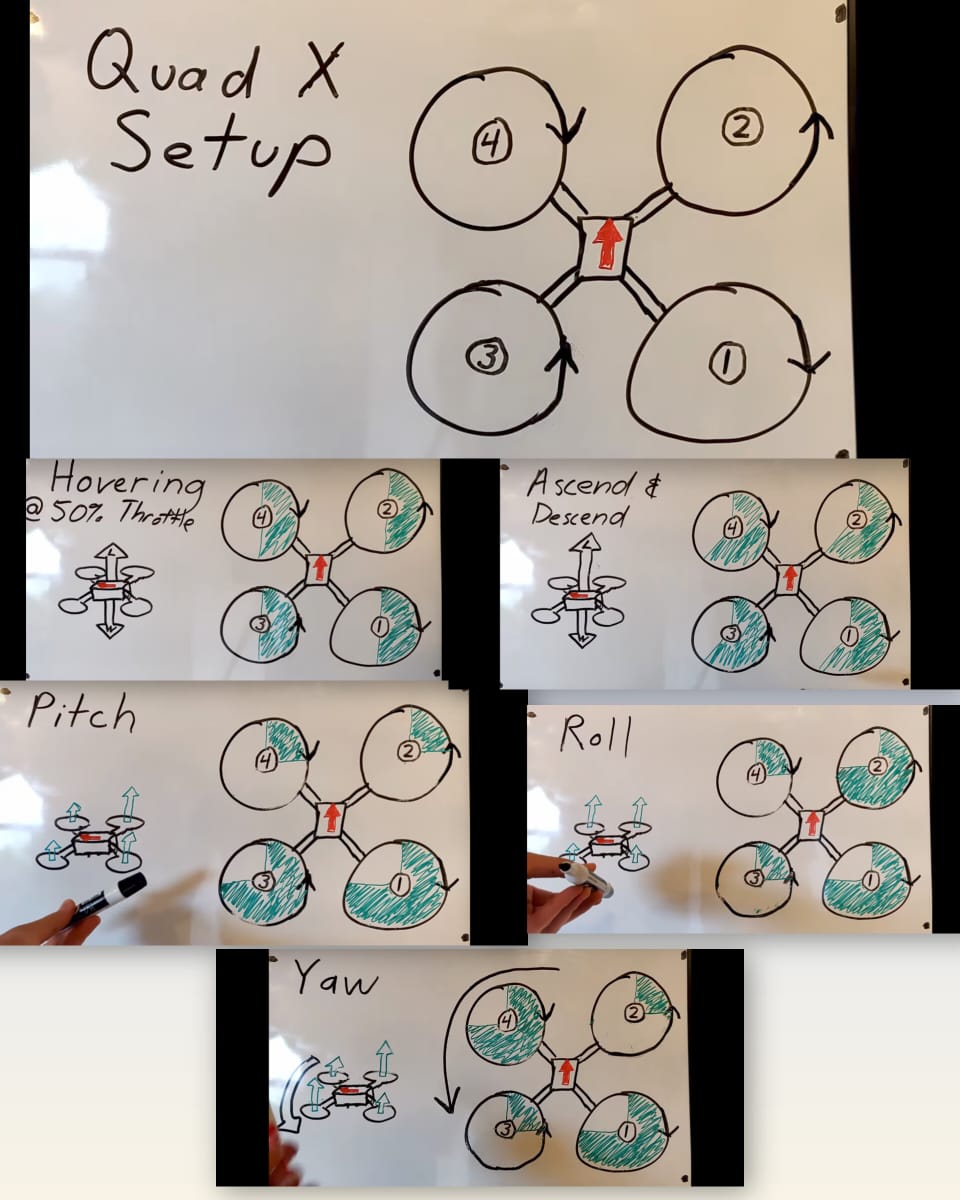 Quad X
Setup
4
2
3
1
Hovering
@ 50% Throttle
L
W
4
2
3
1
Ascend &
Descend
L
W
4
2
3
1
Pitch
4
2
3
1
Roll
4
2
3
1
Yaw
4
2
3
1